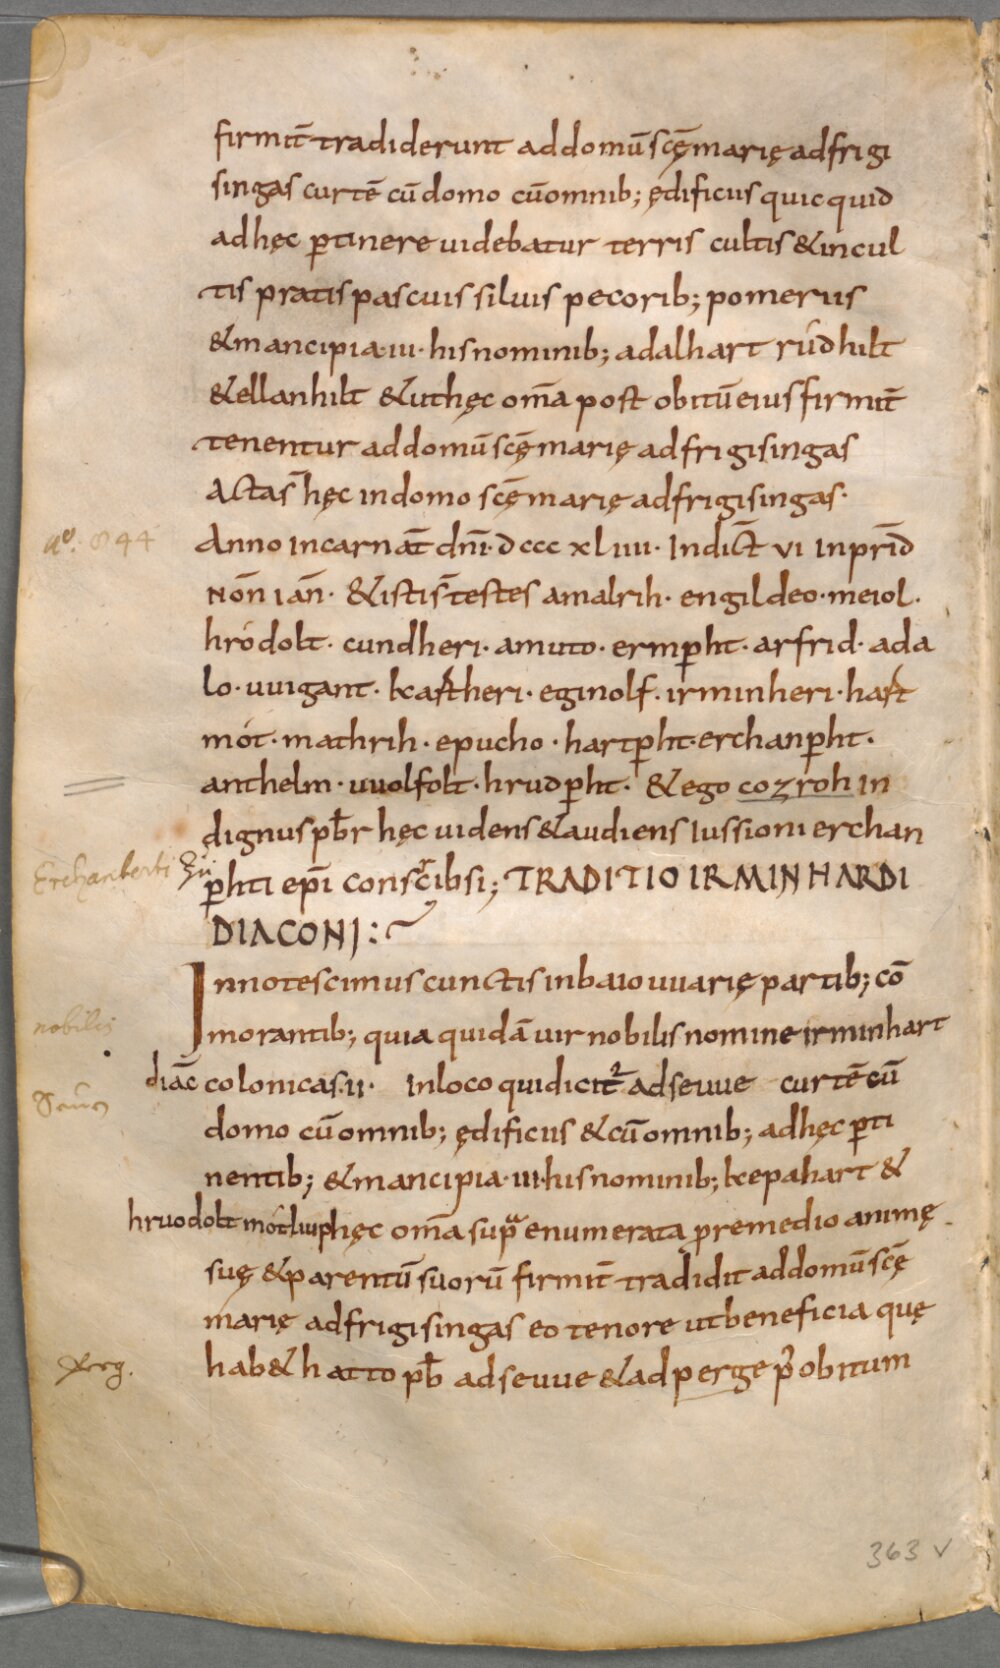 firmit̄ tradiderunt ad domū scę̄ marię ad frigi
singas curtē cū domo cū omnib; ędificiis quicquid
ad hęc ꝑtinere uidebatur terris cultis & incul
tis pratis pascuis siluis pecorib; pomeriis
& mancipia·iii· his nominib; adalhart rúdhilt
& ellanhilt & ut hęc om̄a post obitū eius firmit̄
tenentur ad domū scę̄ marię ad frigisingas
Acta s̄ hęc in domo scę̄ marię ad frigisingas·
a͞o· 844
Anno incarnat̄ dn̄i· dccc xl iiii· Indict̄ vi in prid̄
noñ ian̄· & isti s̄ testes amalrih· engildeo· meiol·
hródolt· cundheri· amuto· ermꝑht· arfrid· ada
lo· uuigant· kartheri· eginolf· irminheri· hart
mót· mathrih· epucho· hartꝑht· erchanꝑht·
anthelm· uuolfolt· hrudꝑht· & ego cozroh in
dignus pb̄r hęc uidens & audiens iussioni erchan
Erchanberti
ꝑhti ep̄i conscribsi; TRADITIO IRMINHARDI
DIACONI:
Innotescimus cunctis in baiouuarię partib; cō
nobilis
morantib; quia quidā uir nobilis nomine irminhart
diac̄ colonicas·ii· In loco qui dicit᷑ ad seuue curtē cū
domo cū omnib; ędificiis & cū omnib; ad hęc ꝑti
nentib; & mancipia·iii· his nominib; kepahart &
hruodolt mótliup hęc om̄a supᷓ enumerata pro remedio animę
suę & parentū suorū firmit̄ tradidit ad domū scę̄
marię ad frigisingas eo tenore ut beneficia quę
Perg.
hab& hatto pb̄ ad seuue & ad perge p᷒ obitum
363 v